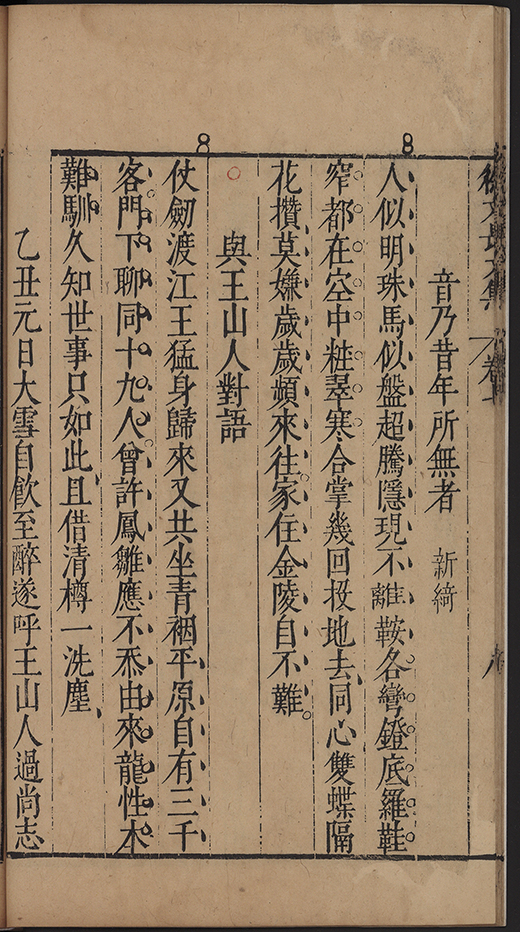 徐文長文集 卷七
音乃昔年所無者 新綺
人似明珠馬似盤超騰隱現不離鞍各彎鐙底羅鞋
窄都在空中粧翠寒合掌幾回投地去同心雙蝶隔
花攢莫嫌歲歲頻來往家住金陵自不難
與王山人對語
仗劒渡江王猛身歸來又共坐青裀平原自有三千
客門下聊同十九人曾許鳳雛應不忝由來龍性本
難馴久知世事只如此且借清樽一洗塵
乙丑元日大雪自飲至醉遂呼王山人過尚志
8
8